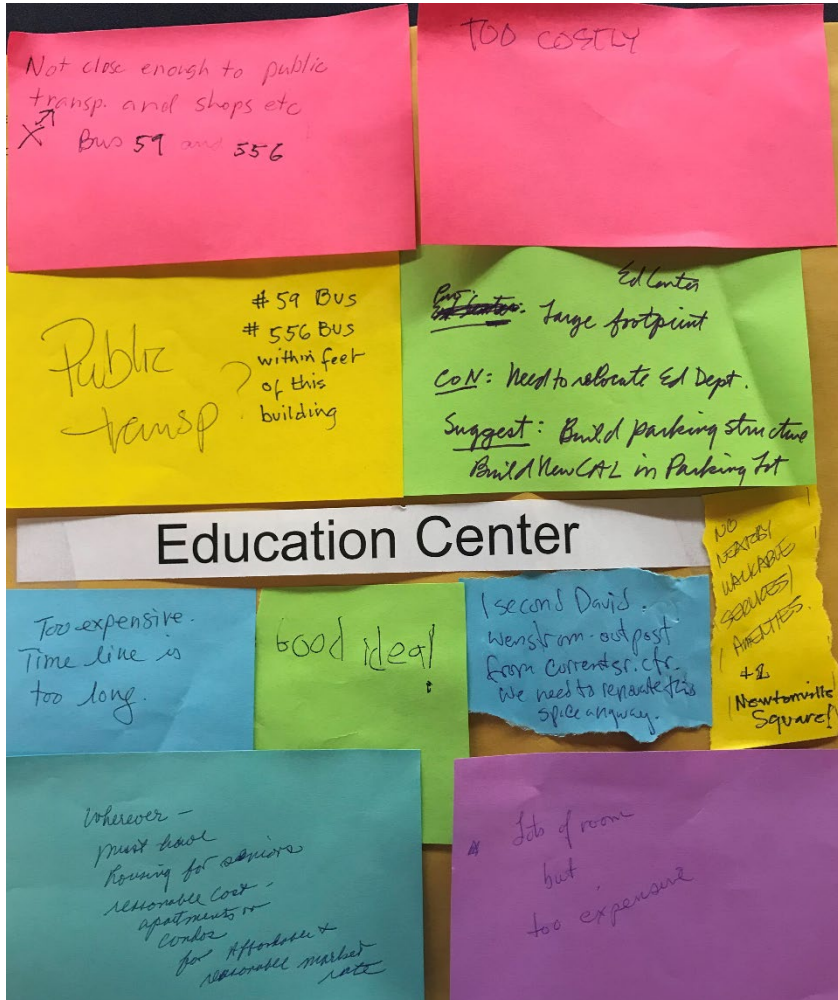 Not close enough to public
transp. and shops etc
X Bus 59 and 556
TOO COSTLY
Public
transp ?
#59 Bus
#556 Bus
within feet
of this
building
Ed Center
Large footprint
CON: Need to relocate Ed Dept.
Suggest: Build parking structure
Build New CAL in Parking Lot
Education Center
NO
NEARBY
WALKABLE
SERVICES/
AMENITIES.
Newtonville
Square!
Too expensive.
Time line is
too long.
Good idea!
I second David
wenstrom-outpost
from current sr. ctr.
we need to renovate this
space anyway.
Wherever -
must have
housing for seniors
reasonable cost -
apartments or
condos
for Affordable +
reasonable market
rate
Lots of room
but
too expensive